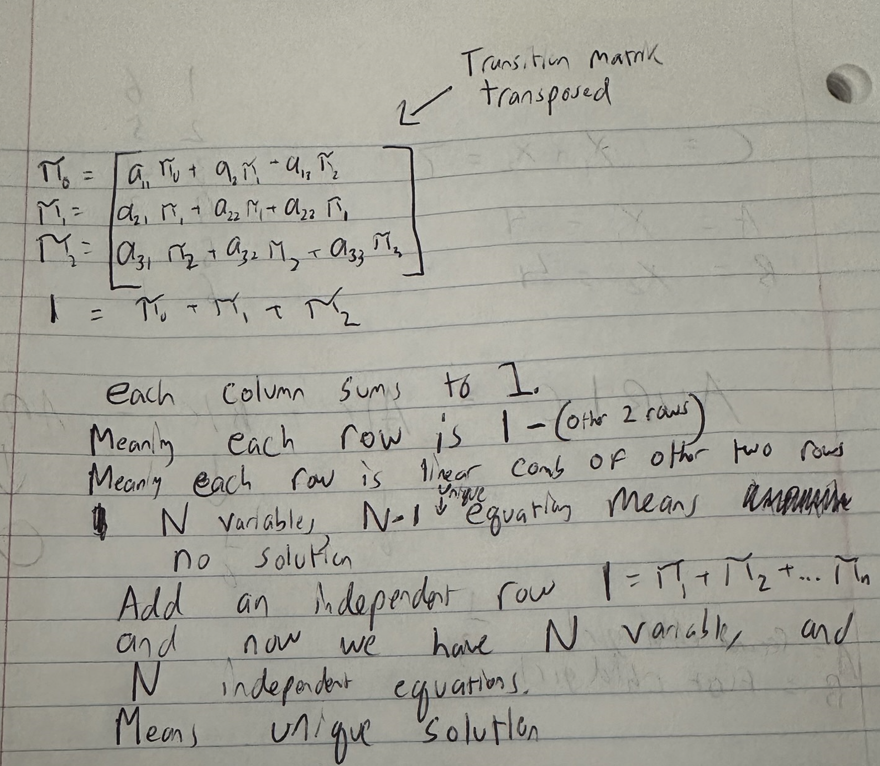 Transition matrix
transposed
π₀ = a₁₁ π₀ + a₁₂ π₁ + a₁₃ π₂
π₁ = a₂₁ π₁ + a₂₂ π₁ + a₂₂ π₁
π₂ = a₃₁ π₂ + a₃₂ π₂ + a₃₃ π₂
1 = π₀ + π₁ + π₂
each column sums to 1.
Meanly each row is 1 - (other 2 rows)
Meany each row is linear comb of other two rows
unique
N variables, N-1 ↓ equations means
no solution
Add an independent row 1 = π₁ + π₂ + ... πₙ
and now we have N variables, and
N independent equations.
Means unique solution